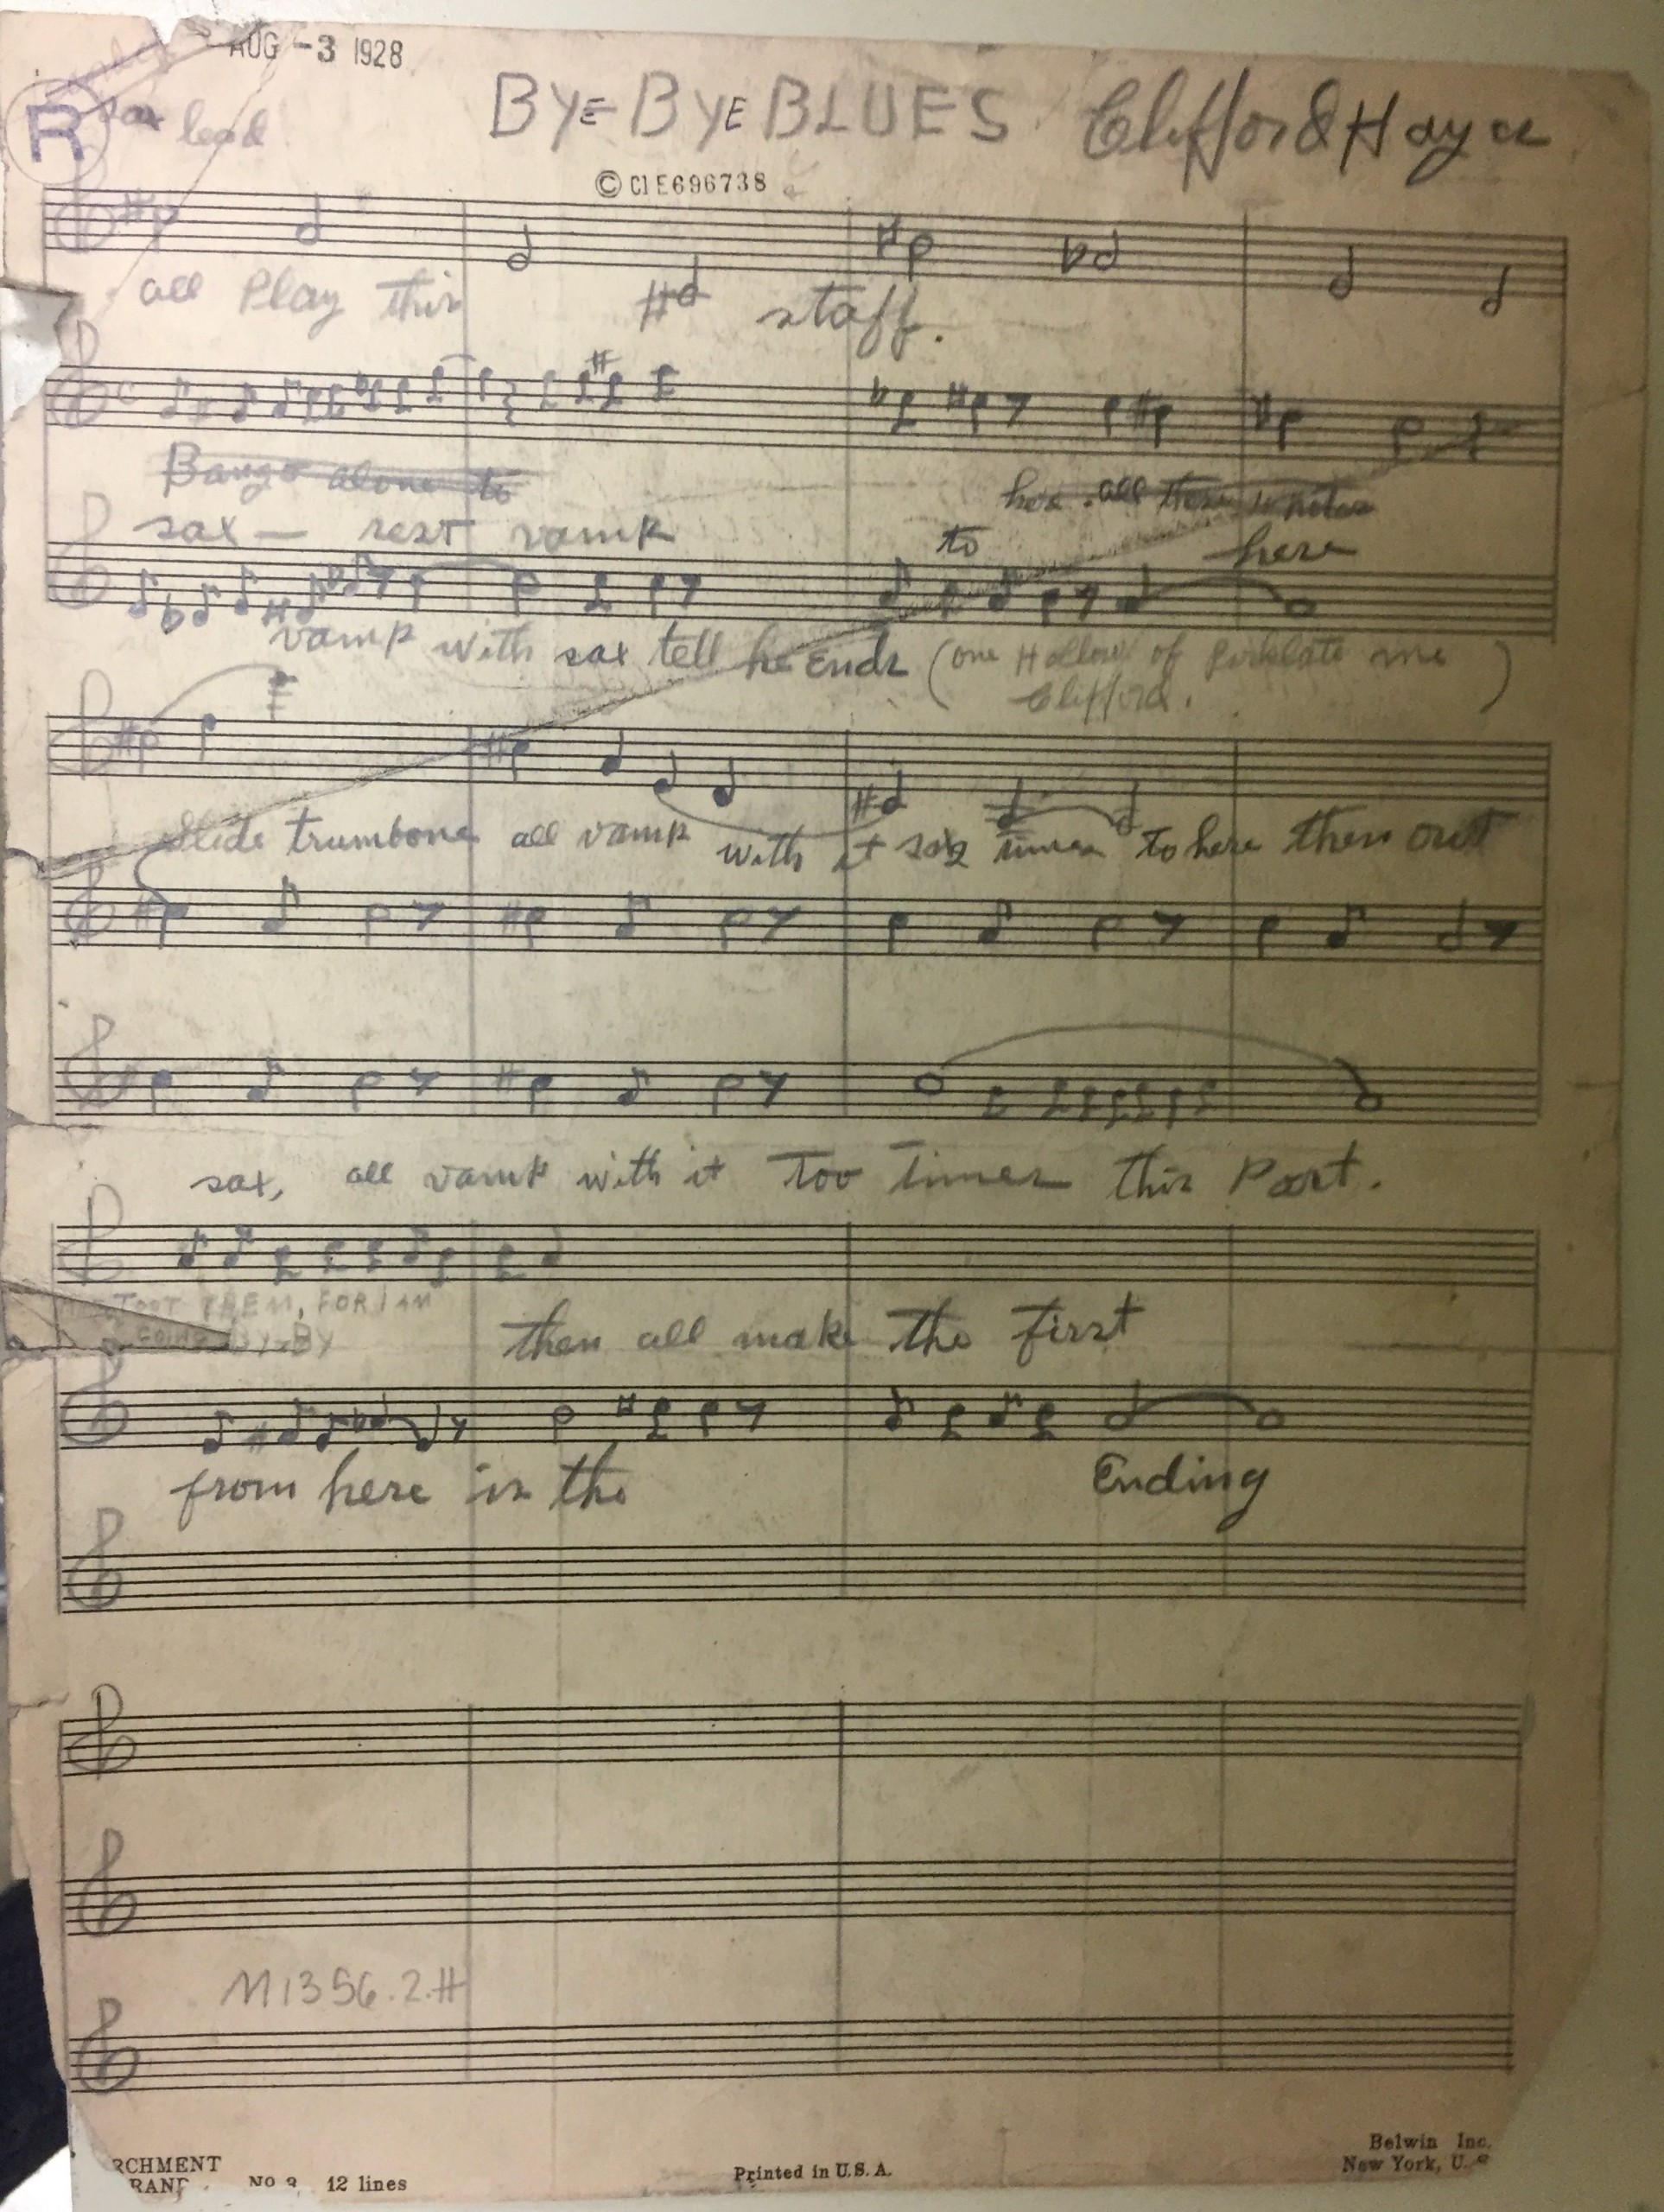 AUG -3 1928
R
sax lead
BYE BYE BLUES Clifford Hayes
© CIE696738
all Play this staff.
Banjo alone to
here. all these notes
sax — rest vamp to here
vamp with sax tell he Ends (one Hollow of me
Clifford. )
Slide trumbone all vamp with it times to here then out
sax, all vamp with it Too Times this Part.
TOOT THEM, FOR I AM
GOING BY-BY
then all make the first
from here is the Ending
M1356.2.H
RCHMENT
RAND No 12 lines
Printed in U.S.A.
Belwin Inc.
New York, U.